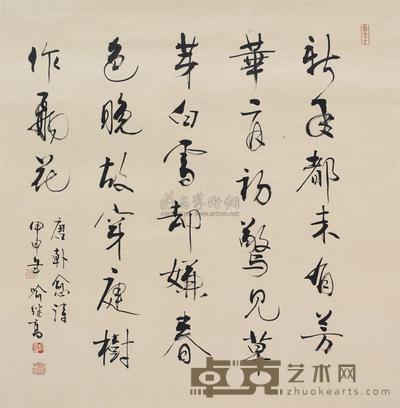 新年都未有芳
華二月初驚見草
芽白雪却嫌春
色晚故穿庭樹
作飛花
唐韩愈詩
甲申年喻继高
卓克艺术网